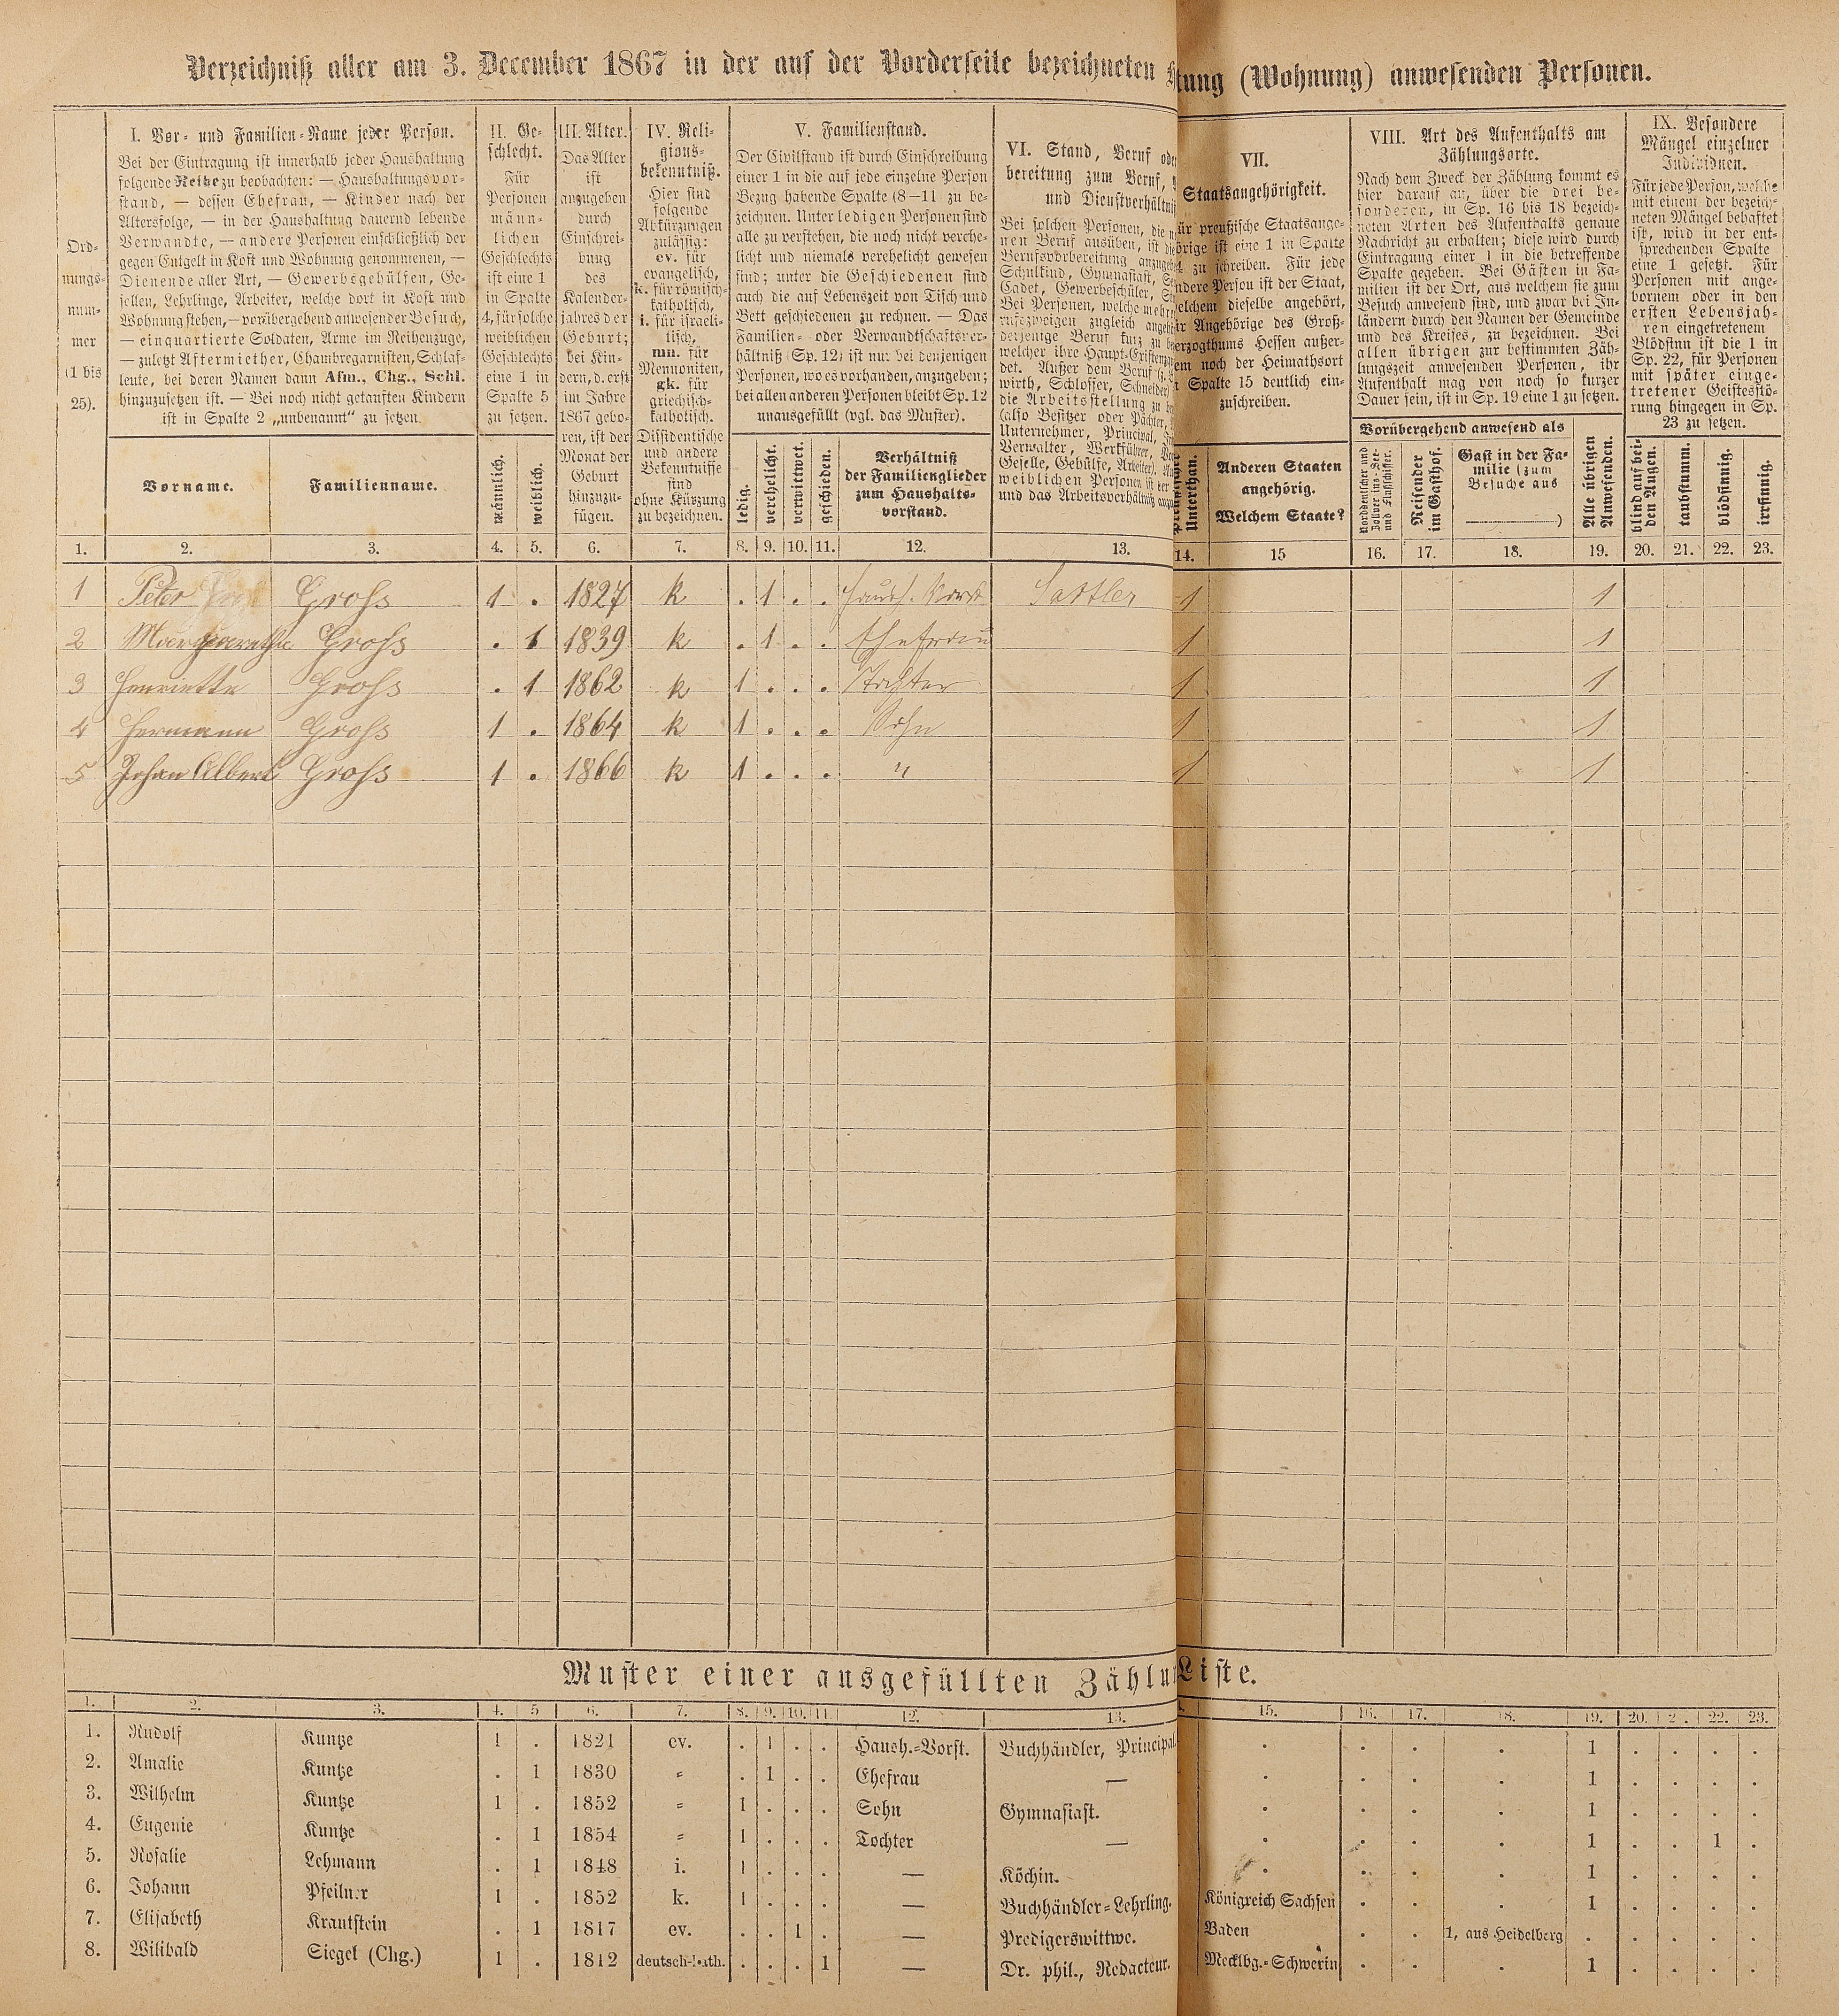 Verzeichniß aller am 3. December 1867 in der auf der Vorderseite bezeichneten
tung (Wohnung) anwesenden Personen.
Ord-
nungs-
num-
mer
(1 bis
25).
I. Vor- und Familien-Name jeder Person.
Bei der Eintragung ist innerhalb jeder Haushaltung
folgende Reihe zu beobachten: — Haushaltungsvor-
stand, — dessen Ehefrau, — Kinder nach der
Altersfolge, — in der Haushaltung dauernd lebende
Verwandte, — andere Personen einschließlich der
gegen Entgelt in Kost und Wohnung genommenen, —
Dienende aller Art, — Gewerbsgehülfen, Ge-
sellen, Lehrlinge, Arbeiter, welche dort in Kost und
Wohnung stehen, — vorübergehend anwesender Besuch,
— einquartierte Soldaten, Arme im Reihenzuge,
— zuletzt Aftermiether, Chambregarnisten, Schlaf-
leute, bei deren Namen dann Afm., Chg., Schl.
hinzuzusetzen ist. — Bei noch nicht getauften Kindern
ist in Spalte 2 „unbenannt“ zu setzen.
Vorname.
Familienname.
II. Ge-
schlecht.
Für
Personen
männ-
lichen
Geschlechts
ist eine 1
in Spalte
4, für solche
weiblichen
Geschlechts
eine 1 in
Spalte 5
zu setzen.
männlich.
weiblich.
III. Alter.
Das Alter
ist
anzugeben
durch
Einschrei-
bung
des
Kalender-
jahres der
Geburt;
bei Kin-
dern, d. erst
im Jahre
1867 gebo-
ren, ist der
Monat der
Geburt
hinzuzu-
fügen.
IV. Reli-
gions-
bekenntniß.
Hier sind
folgende
Abkürzungen
zulässig:
ev. für
evangelisch,
k. für römisch-
katholisch,
i. für israeli-
tisch,
mn. für
Mennoniten,
gk. für
griechisch-
katholisch.
Dissidentische
und andere
Bekenntnisse
sind
ohne Kürzung
zu bezeichnen.
V. Familienstand.
Der Civilstand ist durch Einschreibung
einer 1 in die auf jede einzelne Person
Bezug habende Spalte (8—11 zu be-
zeichnen. Unter ledigen Personen sind
alle zu verstehen, die noch nicht verehe-
licht und niemals verehelicht gewesen
sind; unter die Geschiedenen sind
auch die auf Lebenszeit von Tisch und
Bett geschiedenen zu rechnen. — Das
Familien- oder Verwandtschaftsver-
hältniß (Sp. 12) ist nur bei denjenigen
Personen, wo es vorhanden, anzugeben;
bei allen anderen Personen bleibt Sp. 12
unausgefüllt (vgl. das Muster).
ledig.
verehelicht.
verwittwet.
geschieden.
Verhältniß
der Familienglieder
zum Haushalts-
vorstand.
VI. Stand, Beruf oder
bereitung zum Beruf,
und Dienstverhältniß
Bei solchen Personen, die
nen Beruf ausüben, ist die
Berufsvorbereitung
Schulkind, Gymnasiast,
Cadet, Gewerbeschüler,
Bei Personen, welche mehre
rufszweigen zugleich
derjenige Beruf kurz zu
welcher ihre Haupt-Existenz
det. Außer dem Beruf
wirth, Schlosser, Schneider)
die Arbeitsstellung zu
(also Besitzer oder Pächter,
Unternehmer, Principal,
Verwalter, Werkführer,
Geselle, Gehülfe, Arbeiter).
weiblichen Personen ist
und das Arbeitsverhältniß
VII.
Staatsangehörigkeit.
ür preußische Staatsange-
hörige ist eine 1 in Spalte
zu schreiben. Für jede
ndere Person ist der Staat,
elchem dieselbe angehört,
ir Angehörige des Groß-
erzogthums Hessen außer-
em noch der Heimathsort
Spalte 15 deutlich ein-
zuschreiben.
Unterthan.
Anderen Staaten
angehörig.
Welchem Staate?
VIII. Art des Aufenthalts am
Zählungsorte.
Nach dem Zweck der Zählung kommt es
hier darauf an, über die drei be-
sonderen, in Sp. 16 bis 18 bezeich-
neten Arten des Aufenthalts genaue
Nachricht zu erhalten; diese wird durch
Eintragung einer 1 in die betreffende
Spalte gegeben. Bei Gästen in Fa-
milien ist der Ort, aus welchem sie zum
Besuch anwesend sind, und zwar bei In-
ländern durch den Namen der Gemeinde
und des Kreises, zu bezeichnen. Bei
allen übrigen zur bestimmten Zäh-
lungszeit anwesenden Personen, ihr
Aufenthalt mag von noch so kurzer
Dauer sein, ist in Sp. 19 eine 1 zu setzen.
Vorübergehend anwesend als
Norddeutscher und
Zollver ins-See-
und Flußschiffer.
Reisender
im Gasthof.
Gast in der Fa-
milie (zum
Besuche aus
)
Alle übrigen
Anwesenden.
IX. Besondere
Mängel einzelner
Individuen.
Für jede Person, welche
mit einem der bezeich-
neten Mängel behaftet
ist, wird in der ent-
sprechenden Spalte
eine 1 gesetzt. Für
Personen mit ange-
bornem oder in den
ersten Lebensjah-
ren eingetretenem
Blödsinn ist die 1 in
Sp. 22, für Personen
mit später einge-
tretener Geistesstö-
rung hingegen in Sp.
23 zu setzen.
blind auf bei-
den Augen.
taubstumm.
blödsinnig.
irrsinnig.
1. 2. 3. 4. 5. 6. 7. 8. 9. 10. 11. 12. 13. 14. 15 16. 17. 18. 19. 20. 21. 22. 23.
1 Peter Gross 1 . 1827 k . 1 . . Haush. Vorst Sattler 1 1
2 Margarethe Gross . 1 1839 k . 1 . . Ehefrau 1 1
3 Henriette Gross . 1 1862 k 1 . . . Tochter 1 1
4 Hermann Gross 1 . 1864 k 1 . . . Sohn 1 1
5 Johan Albert Gross 1 . 1866 k 1 . . . " 1 1
Muster einer ausgefüllten Zählu Liste.
1. 2. 3. 4. 5 6. 7. 8. 9. 10. 11 12. 13. 15. 16. 17. 18. 19. 20. 2 . 22. 23.
1. Rudolf Kuntze 1 . 1821 ev. . 1 . . Haush.-Vorst. Buchhändler, Principal . . . . 1 . . . .
2. Amalie Kuntze . 1 1830 = . 1 . . Ehefrau — . . . . 1 . . . .
3. Wilhelm Kuntze 1 . 1852 = 1 . . . Sohn Gymnasiast. . . . . 1 . . . .
4. Eugenie Kuntze . 1 1854 = 1 . . . Tochter — . . . . 1 . . 1 .
5. Rosalie Lehmann . 1 1848 i. 1 . . . — Köchin. . . . . 1 . . . .
6. Johann Pfeilner 1 . 1852 k. 1 . . . — Buchhändler-Lehrling. Königreich Sachsen . . . 1 . . . .
7. Elisabeth Krautstein . 1 1817 ev. . . 1 . — Predigerswittwe. Baden . . 1, aus Heidelberg . . . . .
8. Wilibald Siegel (Chg.) 1 . 1812 deutsch-kath. . . . 1 — Dr. phil., Redacteur. Mecklbg.-Schwerin . . . 1 . . . .